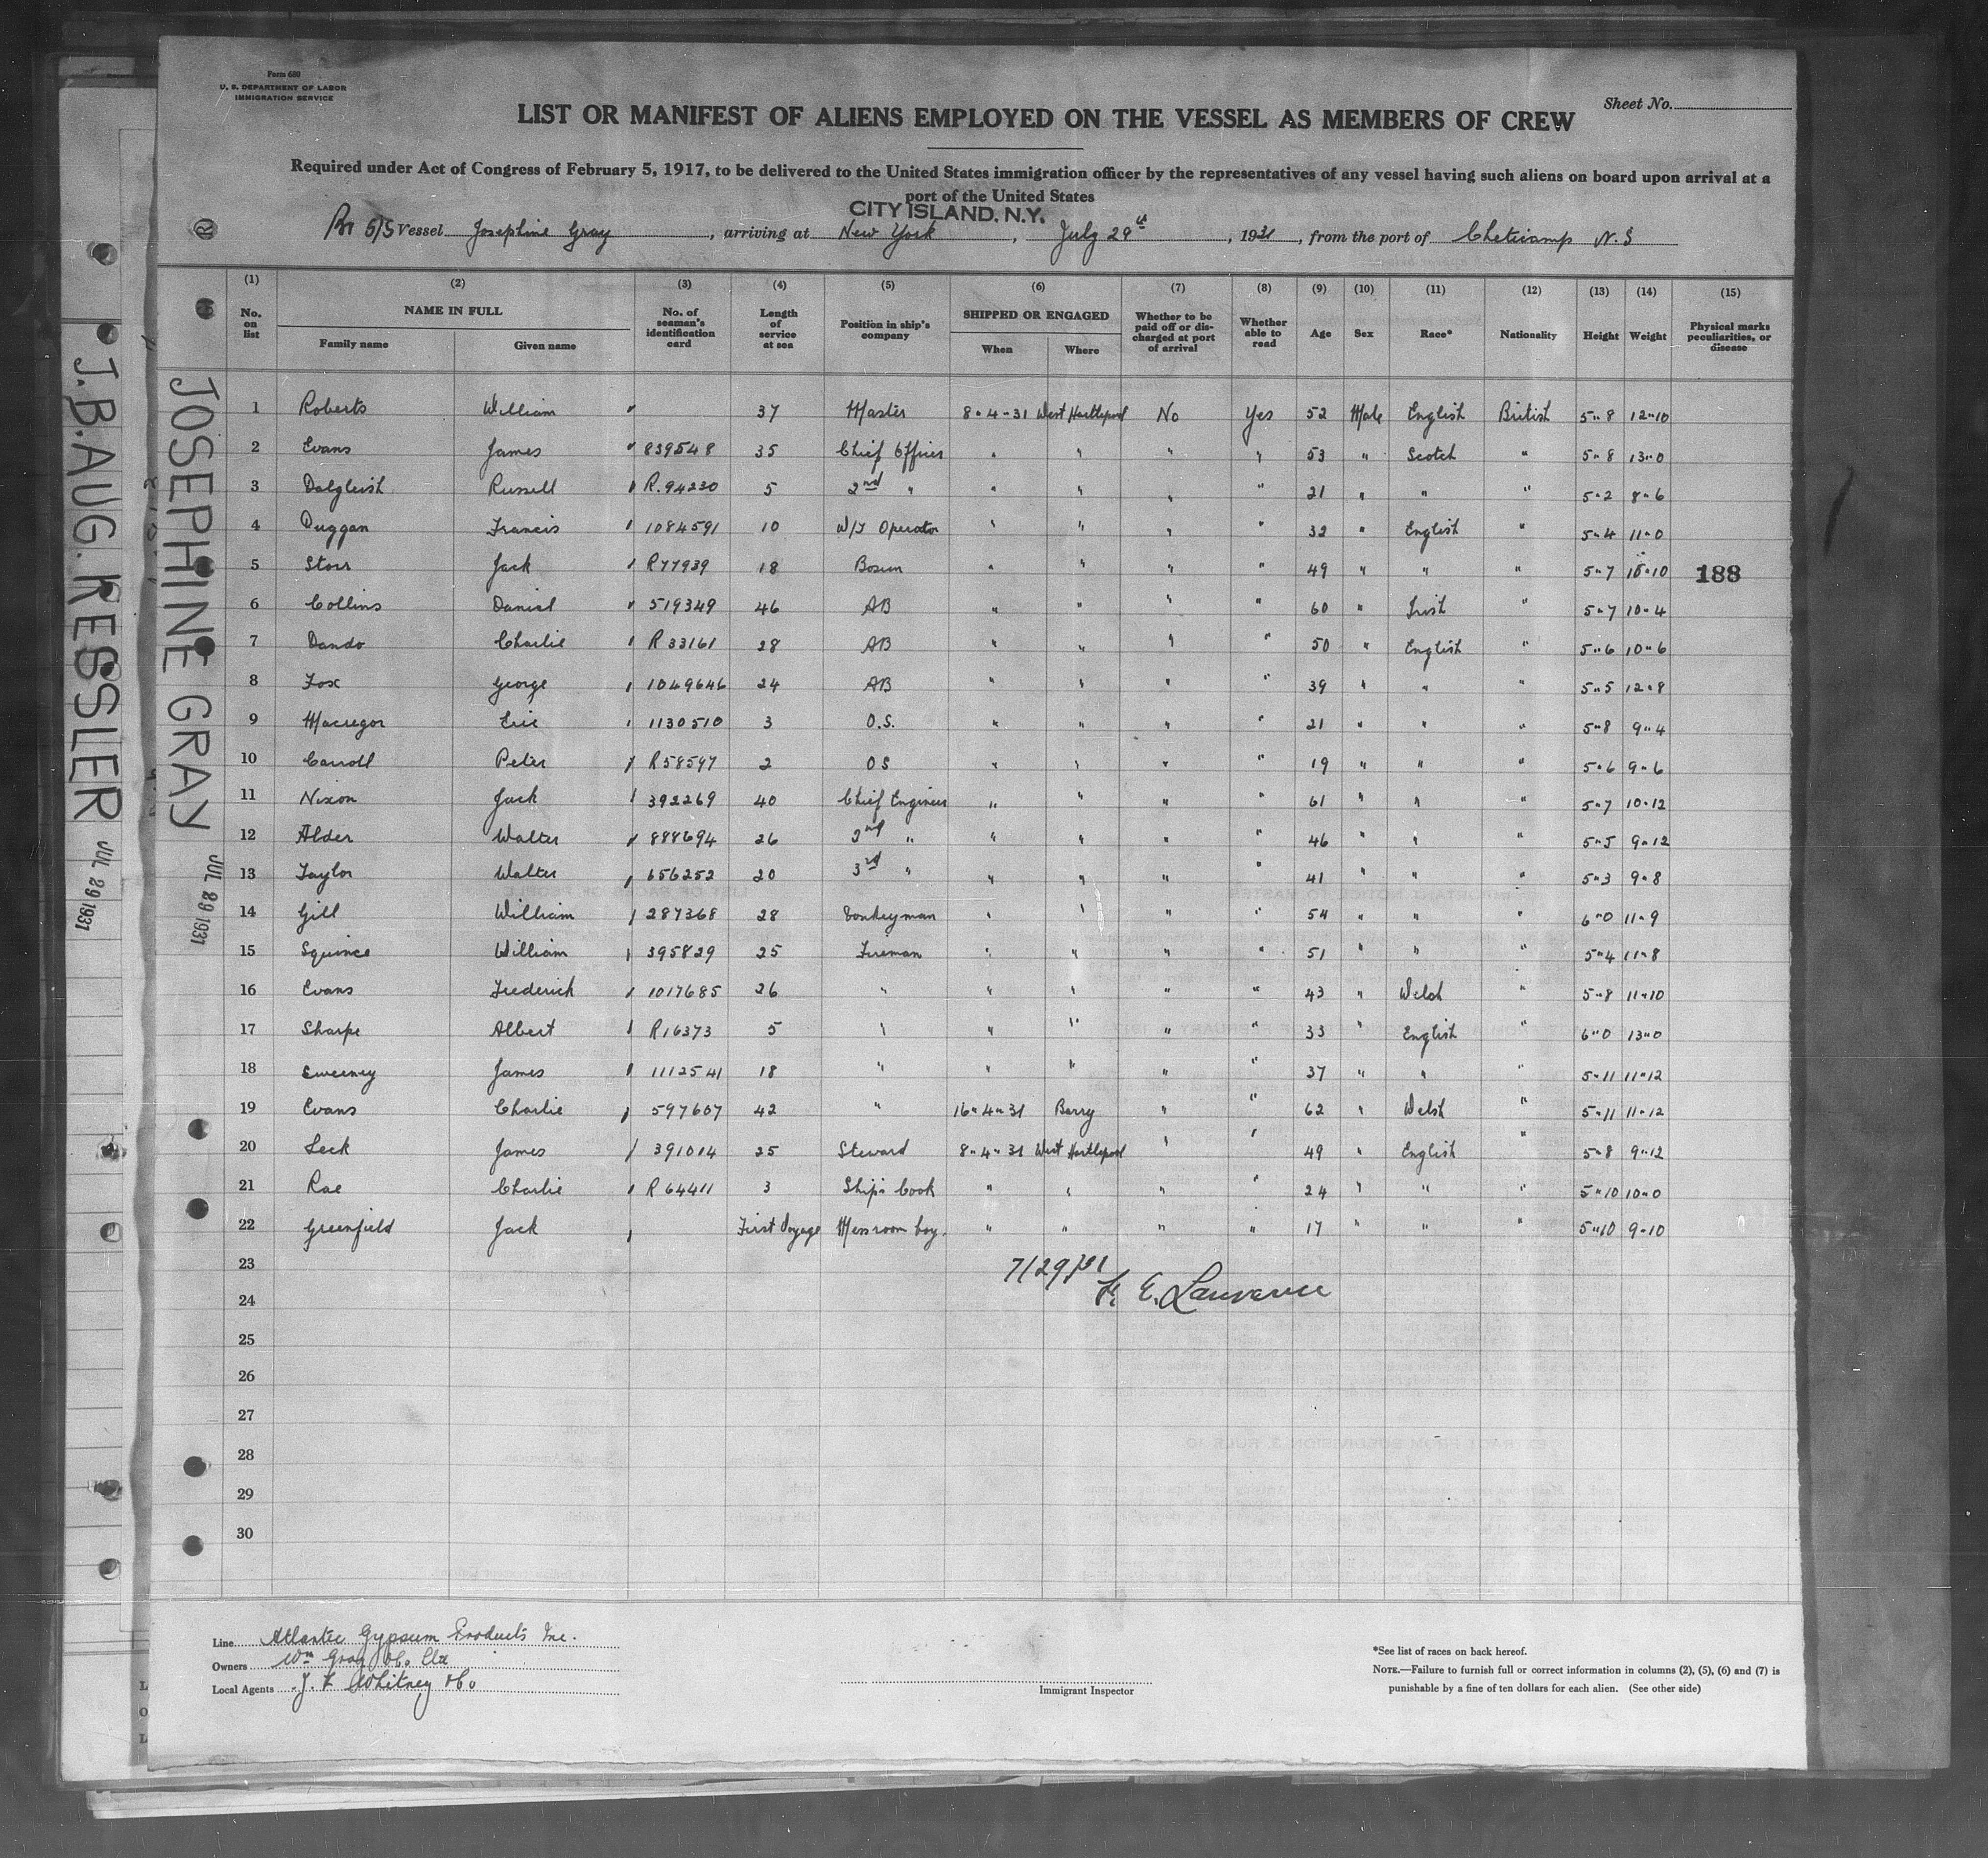 Form 680
U. S. DEPARTMENT OF LABOR
IMMIGRATION SERVICE
Sheet No.
LIST OR MANIFEST OF ALIENS EMPLOYED ON THE VESSEL AS MEMBERS OF CREW
Required under Act of Congress of February 5, 1917, to be delivered to the United States immigration officer by the representatives of any vessel having such aliens on board upon arrival at a
port of the United States
CITY ISLAND, N.Y.
Br S/S Vessel Josephine Gray, arriving at New York, July 29th, 1931, from the port of Cheticamp N.S
(1) (2) (3) (4) (5) (6) (7) (8) (9) (10) (11) (12) (13) (14) (15)
No. on list NAME IN FULL Family name Given name No. of seaman's identification card Length of service at sea Position in ship's company SHIPPED OR ENGAGED When Where Whether to be paid off or discharged at port of arrival Whether able to read Age Sex Race* Nationality Height Weight Physical marks peculiarities, or disease
1 Roberts William " 37 Master 8-4-31 West Hartlepool No Yes 52 Male English British 5-8 12-10
2 Evans James 839548 35 Chief Officer " " " " 53 " Scotch " 5-8 13-0
3 Dalgleish Russell R.94230 5 2nd " " " " " 21 " " " 5-2 8-6
4 Duggan Francis 1084591 10 W/T Operator " " " " 32 " English " 5-4 11-0
5 Storr Jack R77939 18 Bosun " " " " 49 " " " 5-7 10 188
6 Collins Daniel 519349 46 AB " " " " 60 " Irish " 5-7 10-4
7 Dando Charlie R 33161 28 AB " " " " 50 " English " 5-6 10-6
8 Fox George 1049646 24 AB " " " " 39 " " " 5-5 12-8
9 Macregor Eric 1130510 3 O.S. " " " " 21 " " " 5-8 9-4
10 Carroll Peter R58597 2 OS " " " " 19 " " " 5-6 9-6
11 Nixon Jack 392269 40 Chief Engineer " " " " 61 " " " 5-7 10-12
12 Alder Walter 888694 26 2nd " " " " " 46 " " " 5-5 9-12
13 Taylor Walter 656252 20 3rd " " " " " 41 " " " 5-3 9-8
14 Gill William 287368 28 Donkeyman " " " " 54 " " " 6-0 11-9
15 Squince William 395829 25 Fireman " " " " 51 " " " 5-4 11-8
16 Evans Frederick 1017685 26 " " " " " 43 " Welsh " 5-8 11-10
17 Sharpe Albert R16373 5 " " " " " 33 " English " 6-0 13-0
18 Sweeney James 1112541 18 " " " " " 37 " " " 5-11 11-12
19 Evans Charlie 597607 42 " 16-4-31 Barry " " 62 " Welsh " 5-11 11-12
20 Leck James 391014 25 Steward 8-4-31 West Hartlepool " " 49 " English " 5-8 9-12
21 Rae Charlie R 64411 3 Ship's Cook " " " " 24 " " " 5-10 10-0
22 Greenfield Jack First Voyage Messroom boy. " " " " 17 " " " 5-10 9-10
23
7/29/31
24
E. Lawrence
25
26
27
28
29
30
Line Atlantic Gypsum Products Inc.
Owners Wm Gray & Co Ltd
Local Agents J. F. Whitney & Co
Immigrant Inspector
*See list of races on back hereof.
NOTE.—Failure to furnish full or correct information in columns (2), (5), (6) and (7) is
punishable by a fine of ten dollars for each alien. (See other side)
JOSEPHINE GRAY JUL 29 1931
J.B. AUG. KESSLER JUL 29 1931